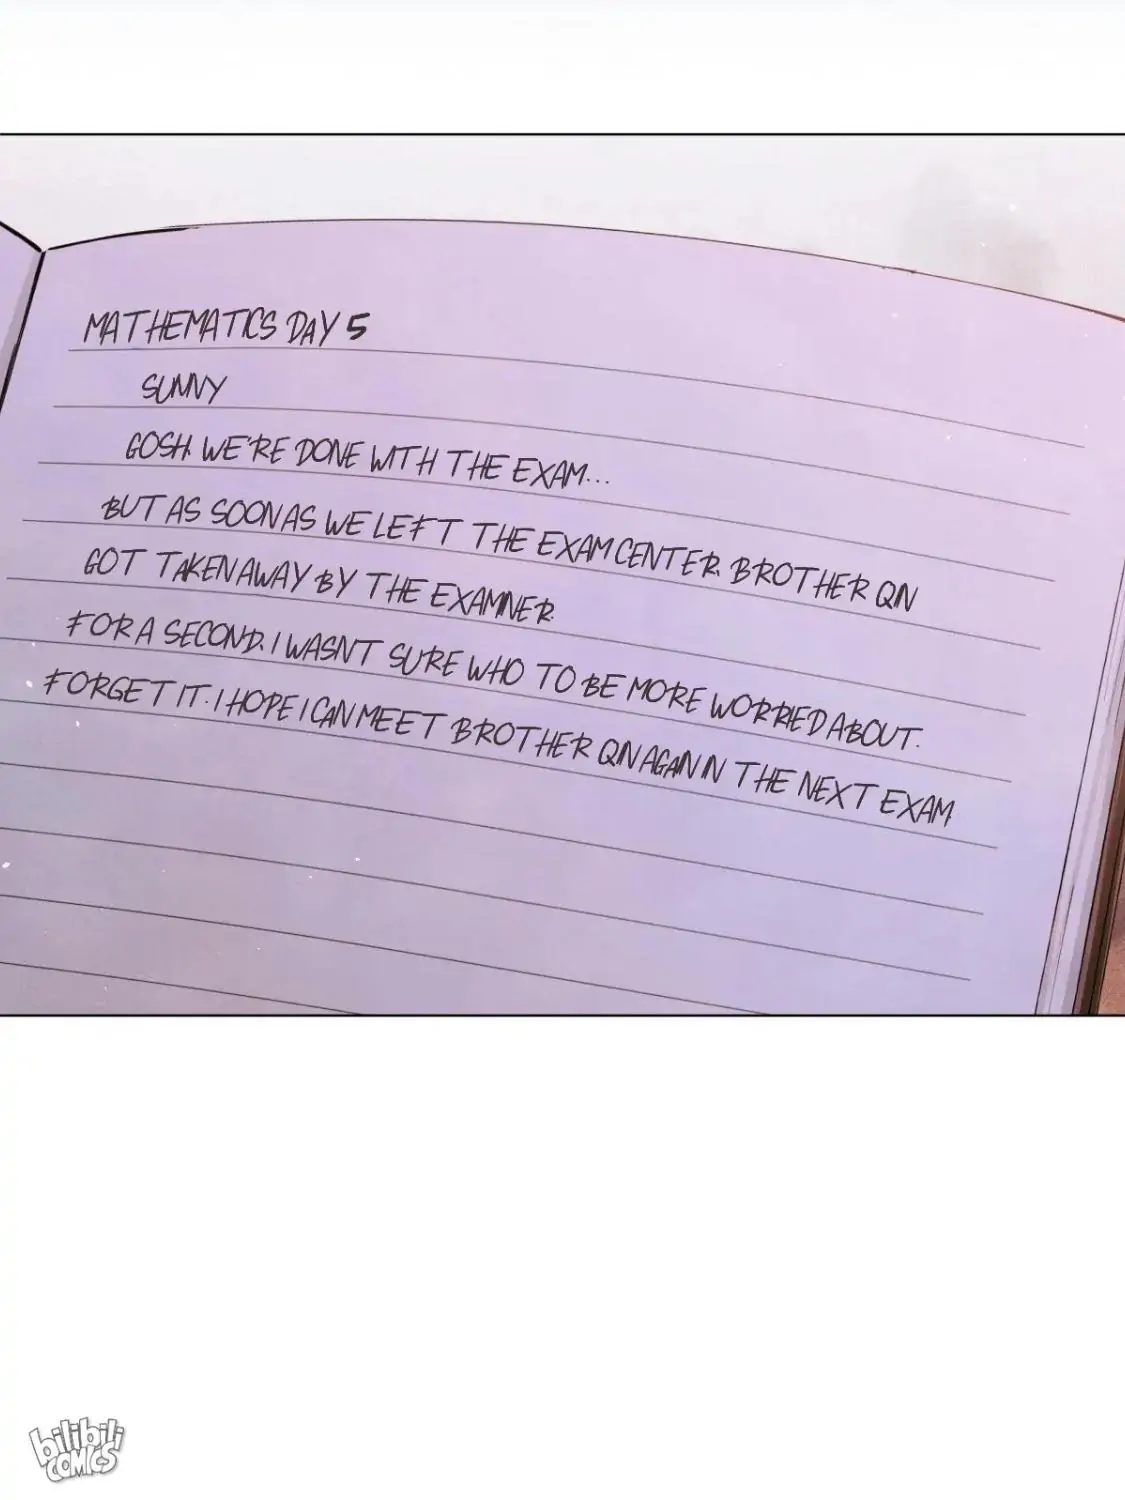 MATHEMATICS DAY 5
SUNNY
GOSH. WE'RE DONE WITH THE EXAM...
BUT AS SOON AS WE LEFT THE EXAM CENTER, BROTHER QIN
GOT TAKEN AWAY BY THE EXAMINER.
FOR A SECOND, I WASN'T SURE WHO TO BE MORE WORRIED ABOUT.
FORGET IT. I HOPE I CAN MEET BROTHER QIN AGAIN IN THE NEXT EXAM.
bilibili
COMICS